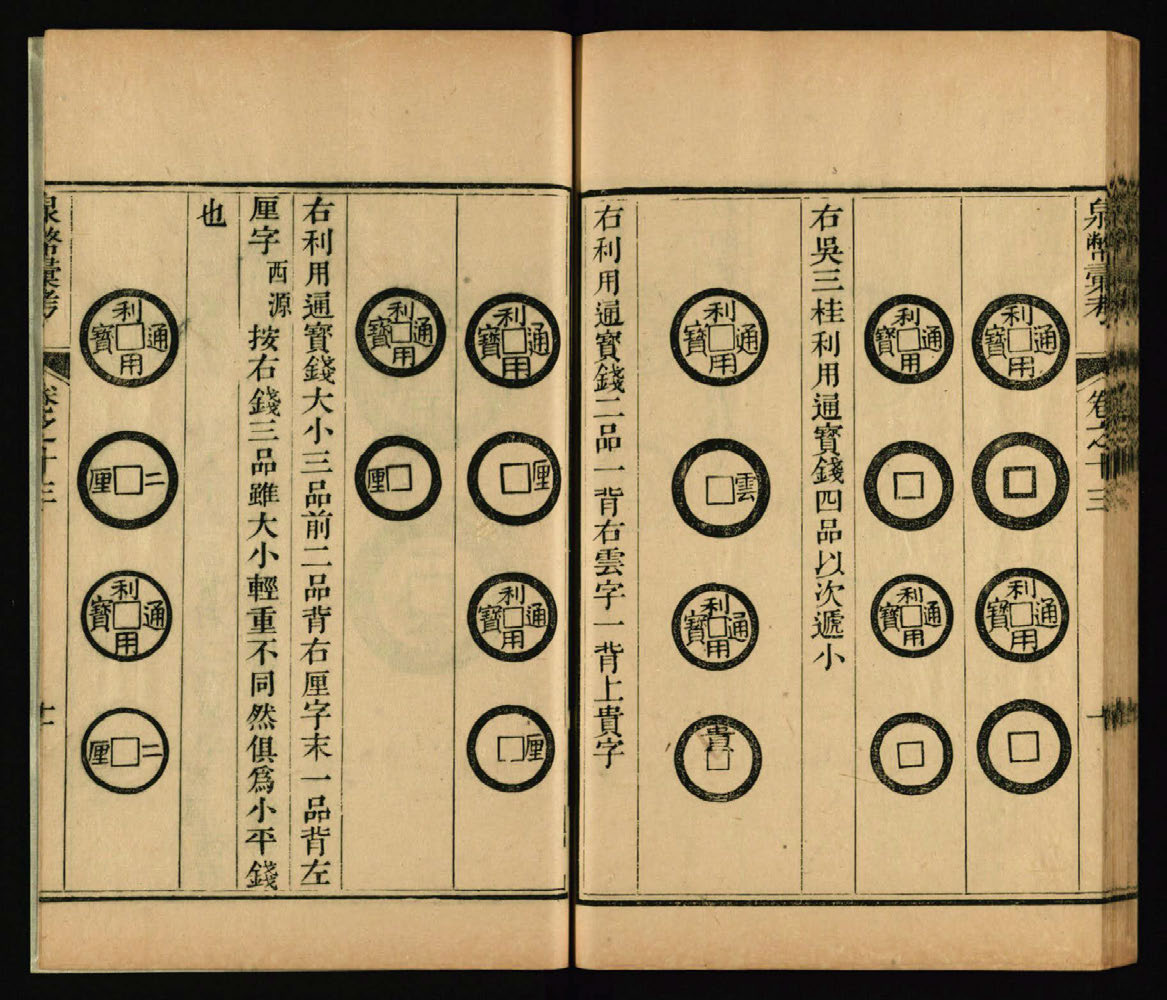 泉幣彙考
卷之十三
利用通寶
利用通寶
利用通寶
利用通寶
右吳三桂利用通寶錢四品以次遞小
利用通寶
雲
利用通寶
貴
右利用通寶錢二品一背右雲字一背上貴字
利用通寶
厘
利用通寶
厘
利用通寶
厘
右利用通寶錢大小三品前二品背右厘字末一品背左
厘字西源按右錢三品雖大小輕重不同然俱爲小平錢
也
利用通寶
二厘
利用通寶
二厘
泉幣彙考
卷之十三